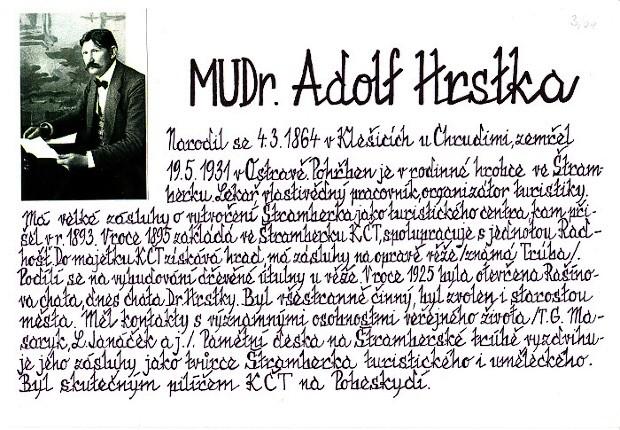 MUDr. Adolf Hrstka
Narodil se 4.3.1864 v Klešicích u Chrudimi, zemřel
19.5.1931 v Ostravě. Pohřben je v rodinné hrobce ve Štram-
berku. Lékař, vlastivědný pracovník, organizátor turistiky.
Má velké zásluhy o vytvoření Štramberka jako turistického centra, kam při-
šel v r. 1893. V roce 1895 zakládá ve Štramberku KČT, spolupracuje s jednotou Rad-
hošť. Do majetku KČT získává hrad, má zásluhy na opravě věže /známá Trúba/.
Podílí se na vybudování dřevěné útulny u věže. V roce 1925 byla otevřena Rašíno-
va chata, dnes chata Dr. Hrstky. Byl všestranně činný, byl zvolen i starostou
města. Měl kontakty s významnými osobnostmi veřejného života /T.G. Ma-
saryk, L. Janáček a j./. Pamětní deska na Štramberské trúbě vyzdvihu-
je jeho zásluhy jako tvůrce Štramberka turistického i uměleckého.
Byl skutečným pilířem KČT na Pobeskydí.